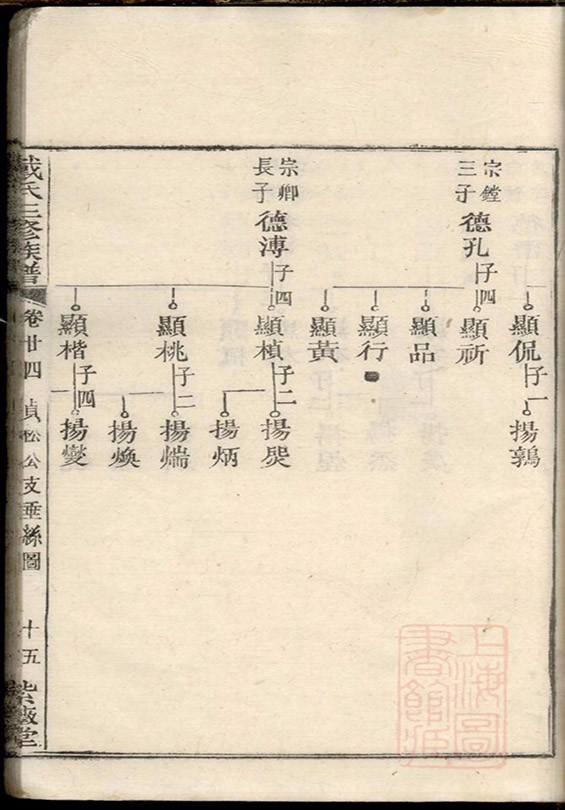 顯侃
子一
揚鶉
宗鏜三子
德孔
子四
顯祈
顯品
顯行
顯黃
宗卿長子
德溥
子四
顯楨
子二
揚炳
顯桃
子二
揚煓
揚煥
顯楷
子四
揚燮
戴氏三修族譜
卷廿四
貞松公支垂絲圖
十五
紫薇堂
上海圖書館藏